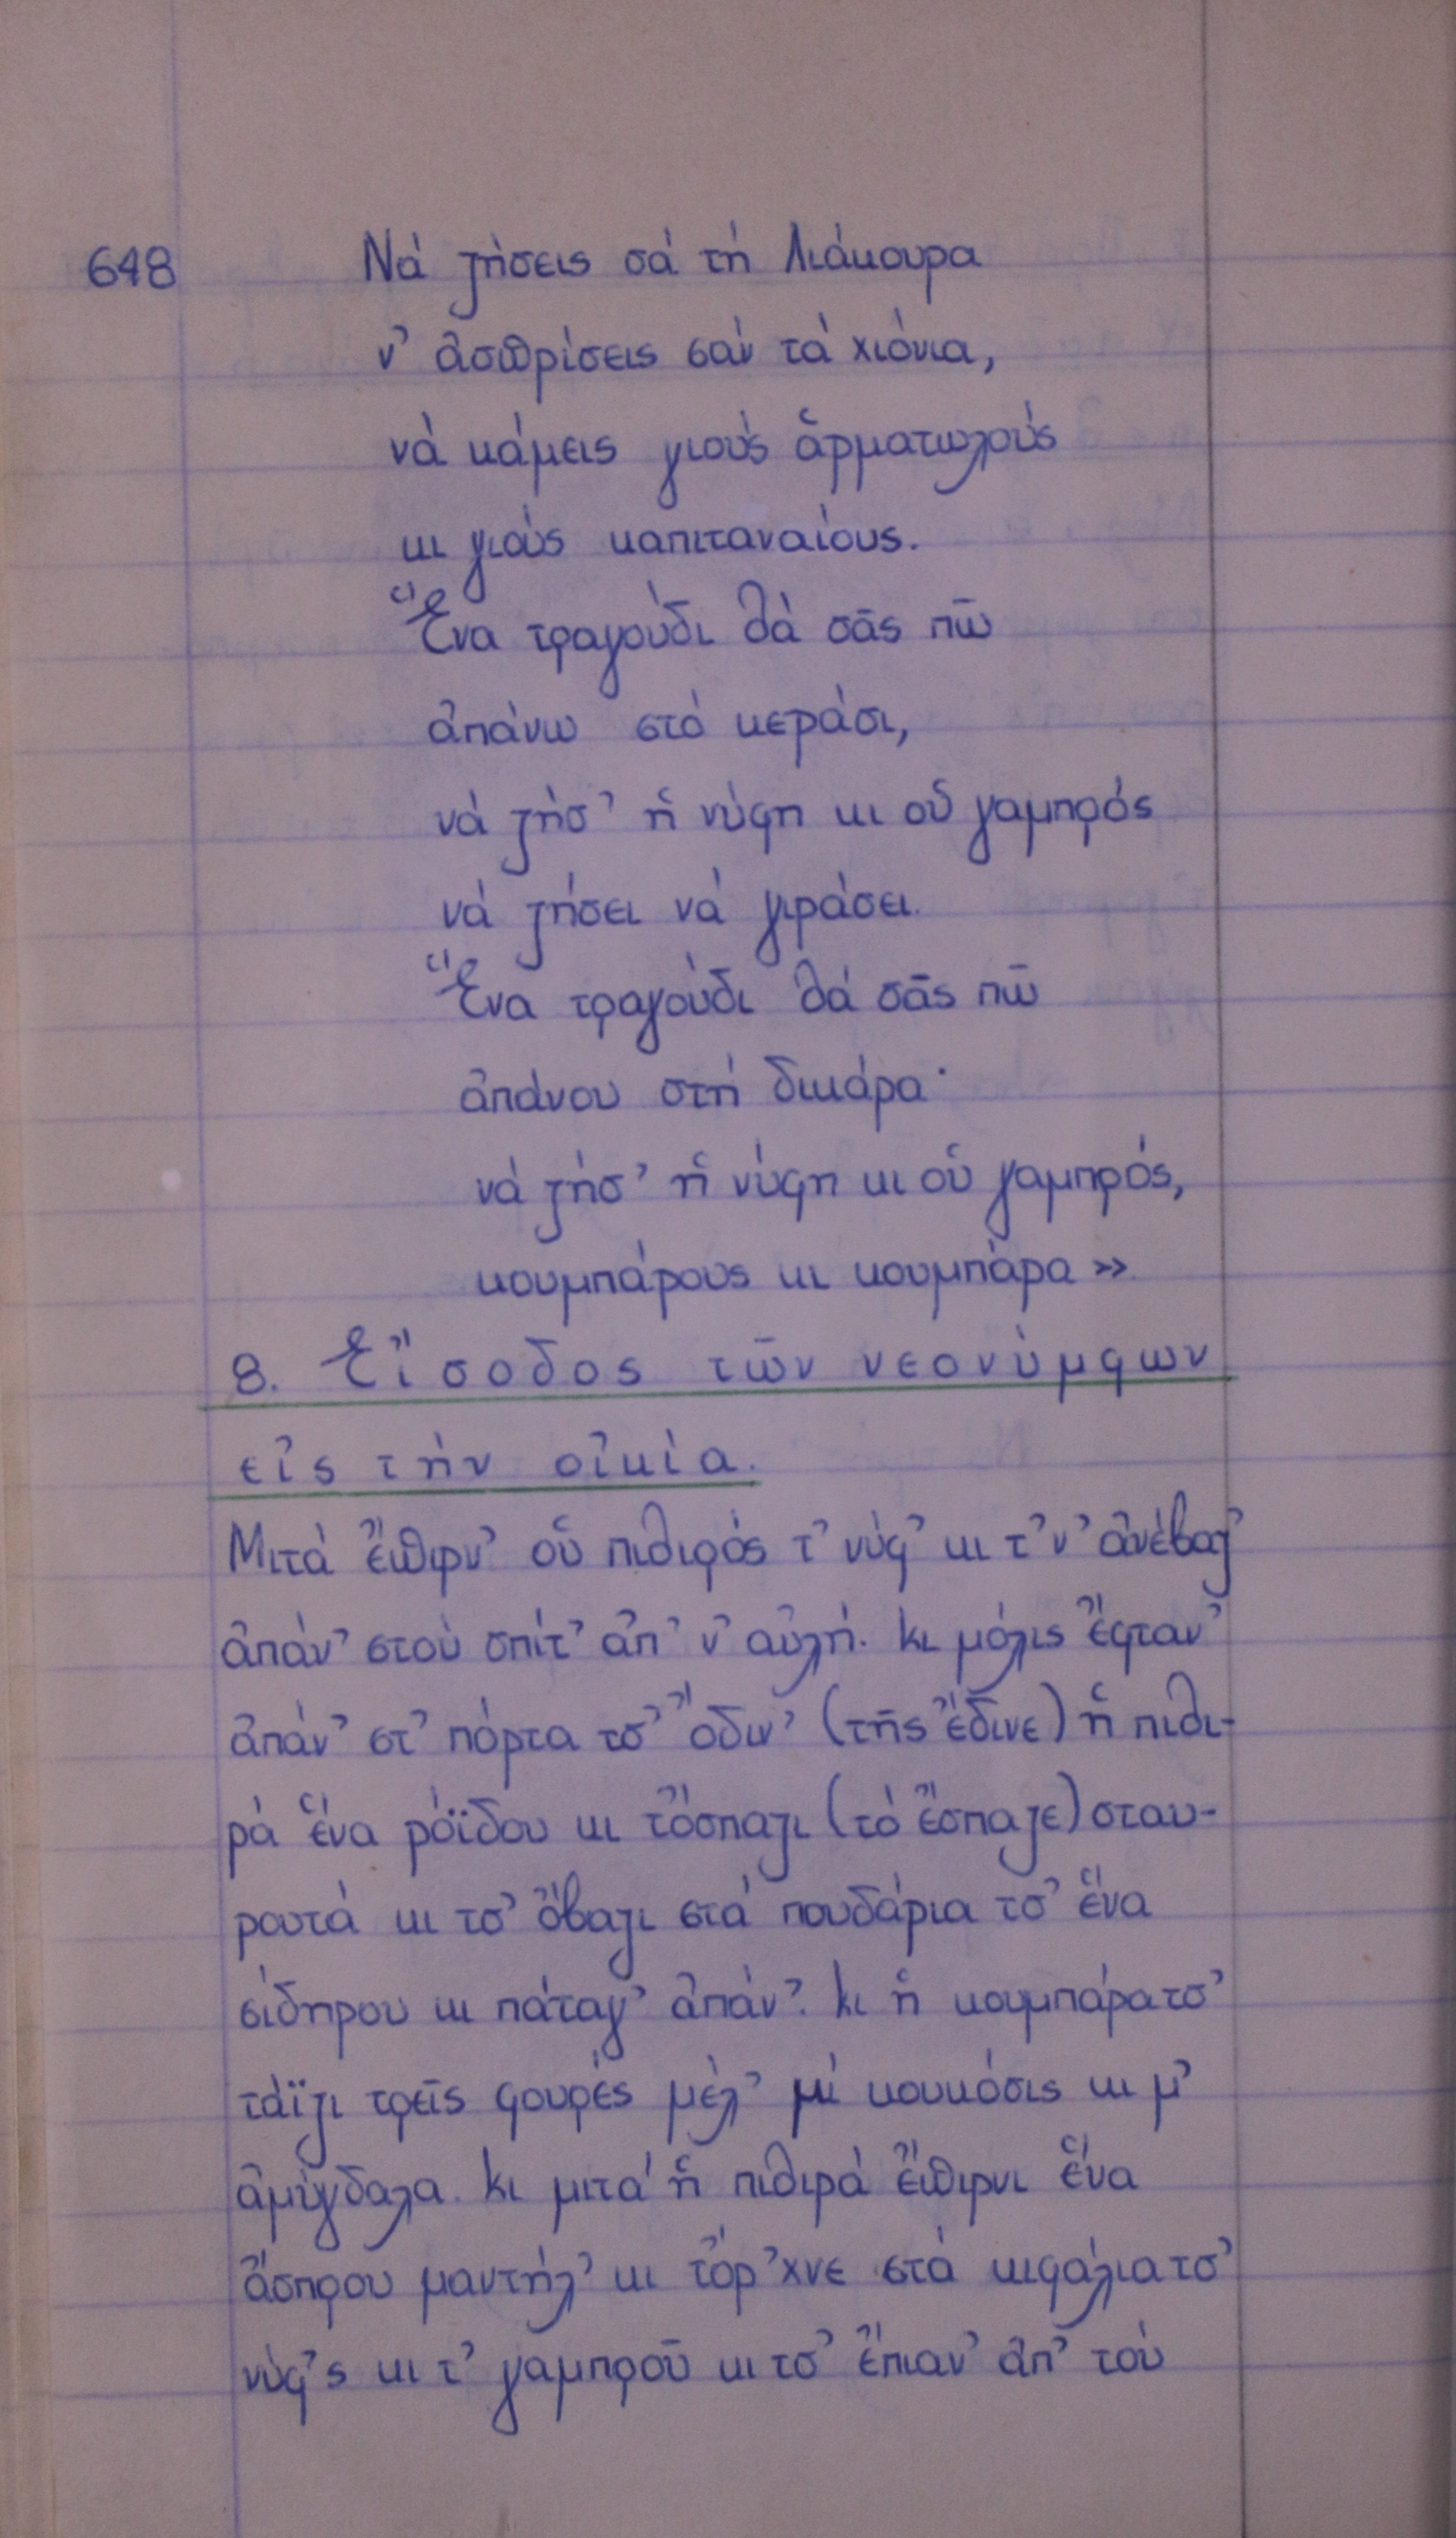 648 Νά ζήσεις σά τή Λιάκουρα
ν’ ἀσπρίσεις σάν τά χιόνια,
νά κάμεις γιούς ἁρματωλούς
κι γιούς καπιταναίους.
Ἕνα τραγούδι θά σᾶς πῶ
ἀπάνω στό κεράσι,
νά ζήσ’ ἡ νύφη κι οὑ γαμπρός
νά ζήσει νά γιράσει.
Ἕνα τραγούδι θά σᾶς πῶ
ἀπάνου στή δικάρα·
νά ζήσ’ ἡ νύφη κι οὑ γαμπρός,
κουμπάρους κι κουμπάρα»
8. Εἴσοδος τῶν νεονύμφων
εἰς τήν οἰκία.
Μιτά ἔπιρν’ οὑ πιθιρός τ’ νύφ’ κι τ’ν’ ἀνέβαζ’
ἀπάν’ στού σπίτ’ ἀπ’ ν’ αὐλή. κι μόλις ἔφταν’
ἀπάν’ στ’ πόρτα τσ’ ὄδιν’ (τῆς ἔδινε) ἡ πιθι-
ρά ἕνα ρόϊδου κι τὄσπαζι (τό ἔσπαζε) σταυ-
ρουτά κι τσ’ ὄβαζι στά πουδάρια τσ’ ἕνα
σίδηρου κι πάταγ’ ἀπάν’. κι ἡ κουμπάρα τσ’
τάϊζι τρεῖς φουρές μέλ’ μί κουκόσις κι μ’
ἀμύγδαλα. κι μιτά ἡ πιθιρά ἔπιρνι ἕνα
ἄσπρου μαντήλ’ κι τὄρ’χνε στά κιφάλια τσ’
νύφ’ς κι τ’ γαμπροῦ κι τσ’ ἔπιαν’ ἀπ’ τού